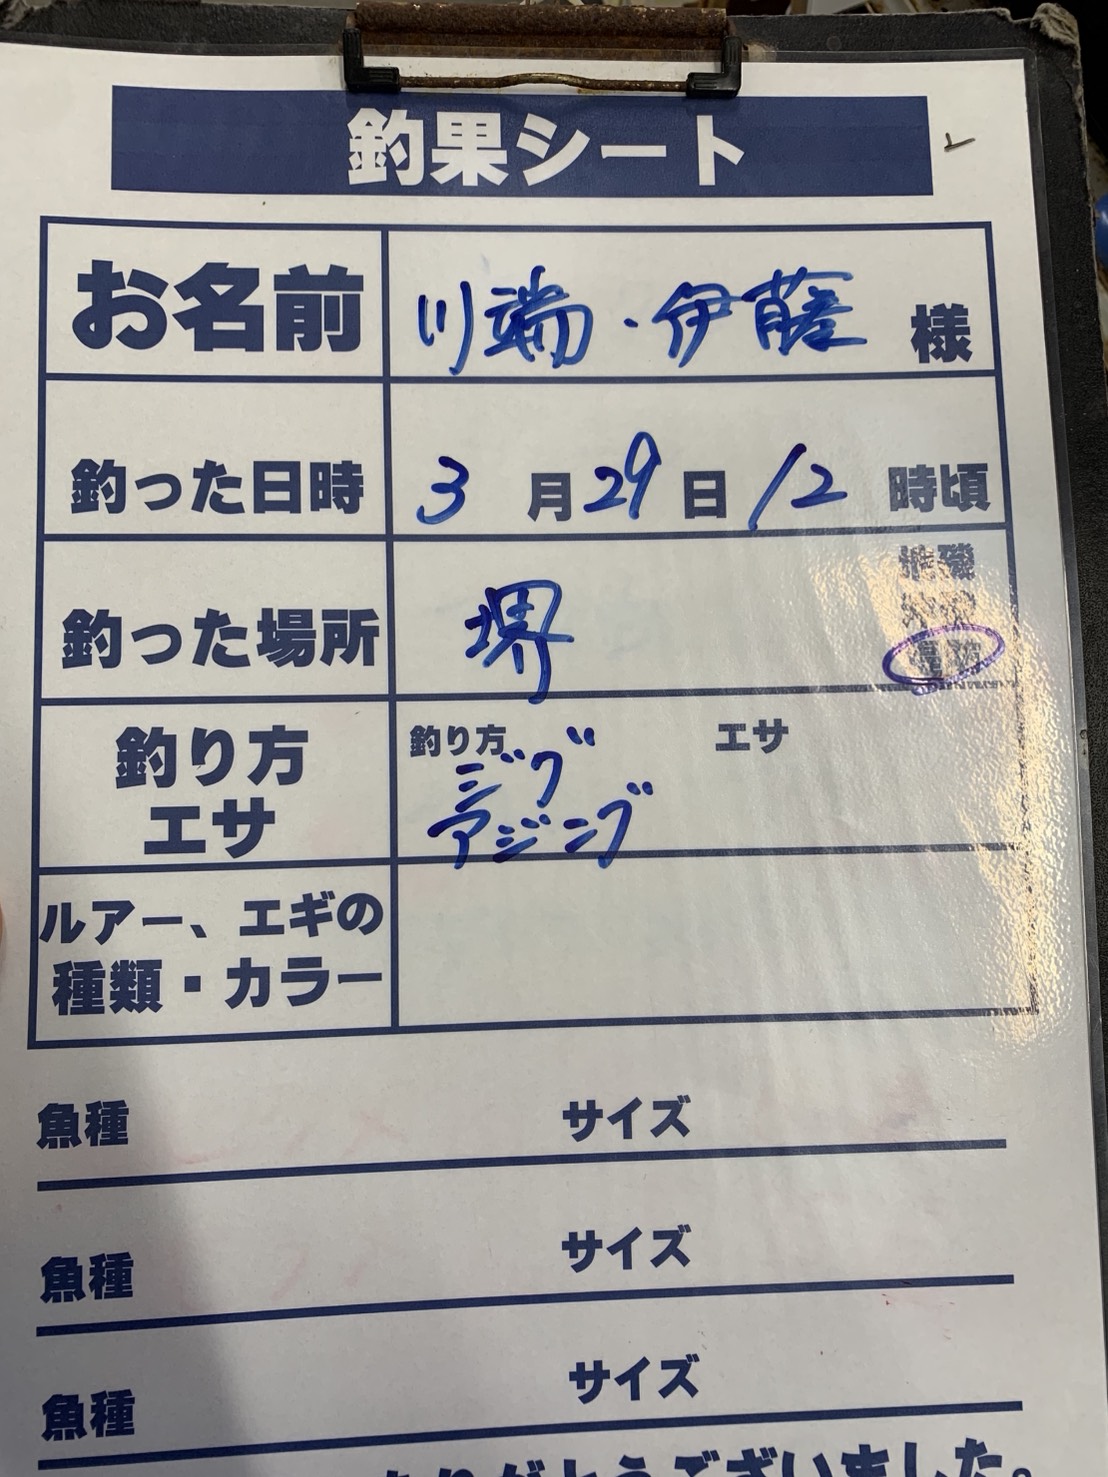 釣果シート
お名前 川端・伊藤 様
釣った日時 3月29日12時頃
釣った場所 堺
釣り方
エサ
釣り方 エサ
ジグ
アジング
ルアー、エギの
種類・カラー
魚種 サイズ
魚種 サイズ
魚種 サイズ
ありがとうございました。